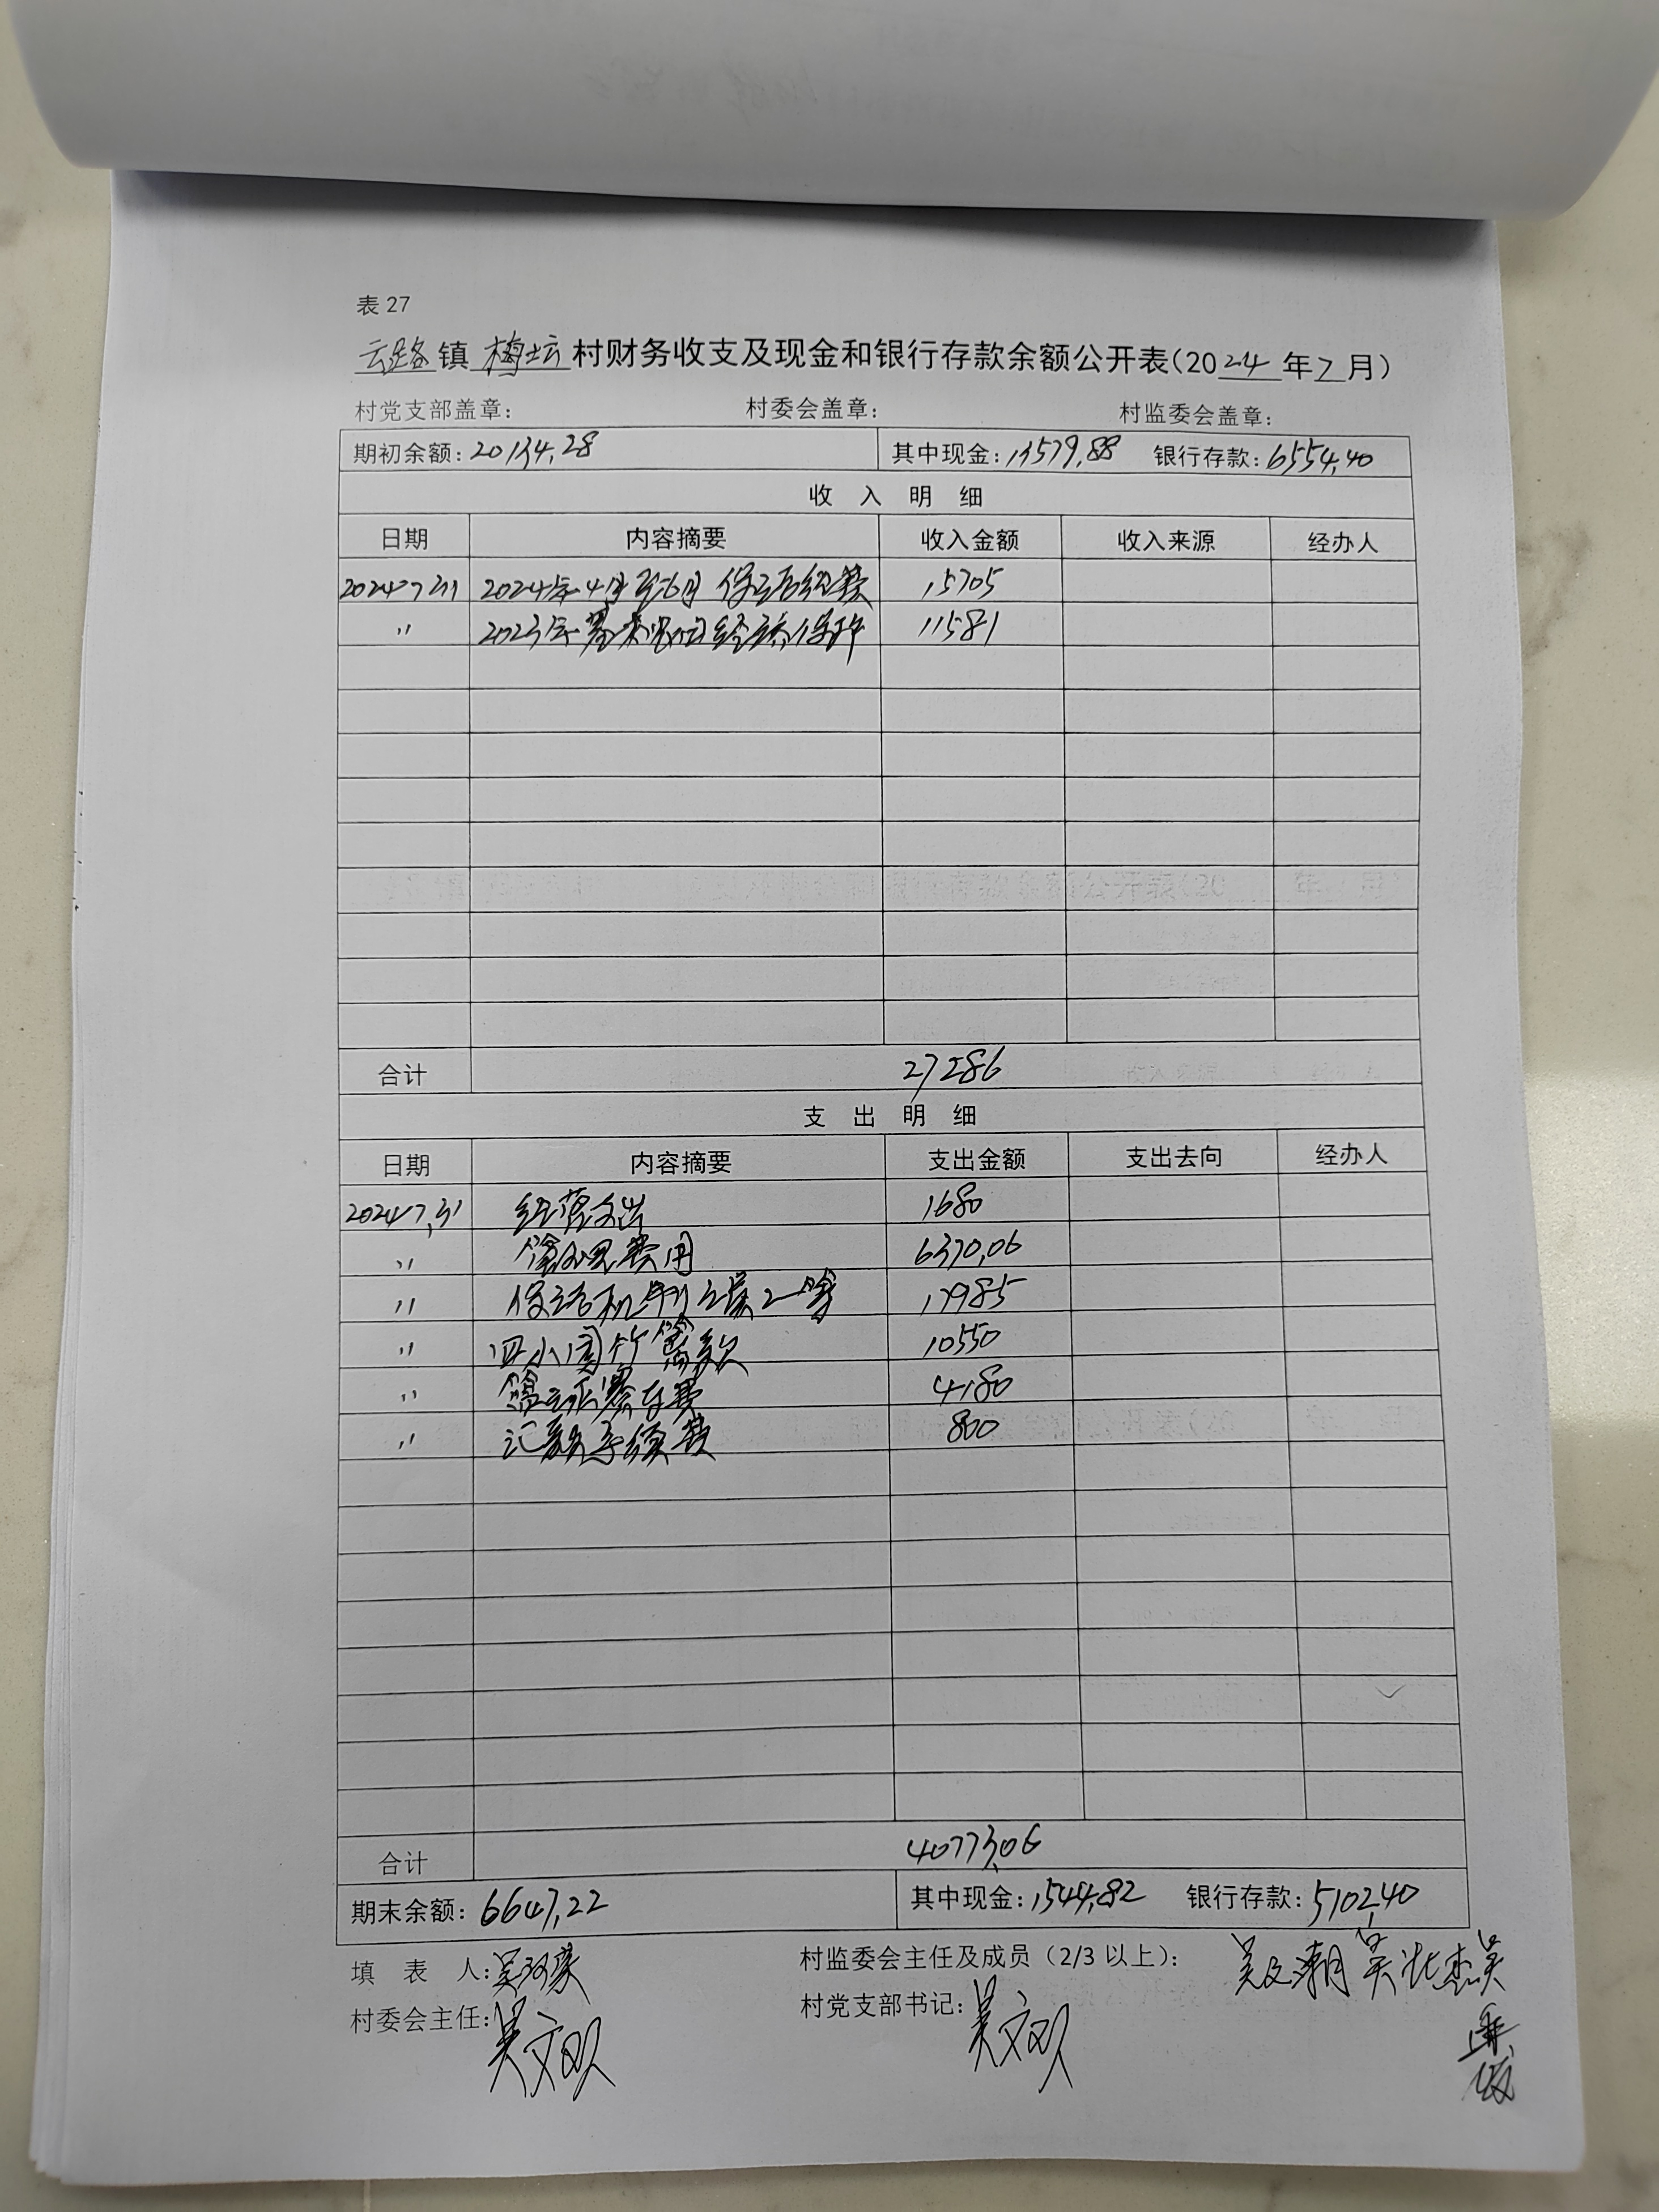 表 27
云路镇梅坛村财务收支及现金和银行存款余额公开表(2024年7月)
村党支部盖章: 村委会盖章: 村监委会盖章:
期初余额: 20134.28 其中现金: 13579.88 银行存款: 6554.40
收 入 明 细
日期 内容摘要 收入金额 收入来源 经办人
2024.7.31 2024年4月至6月保洁经费 15705
〃 2023年基本农田经济保护 11581
合计 27286
支 出 明 细
日期 内容摘要 支出金额 支出去向 经办人
2024.7.31 经营支出 1680
〃 管理费用 6370.06
〃 保洁 17985
〃 四小园竹篱款 10550
〃 4180
〃 汇款手续费 800
合计 40773.06
期末余额: 6647.22 其中现金: 1544.82 银行存款: 5102.40
填 表 人: 吴 村监委会主任及成员（2/3 以上）: 吴 潮 吴 杰 吴
村委会主任: 吴文 村党支部书记: 吴文